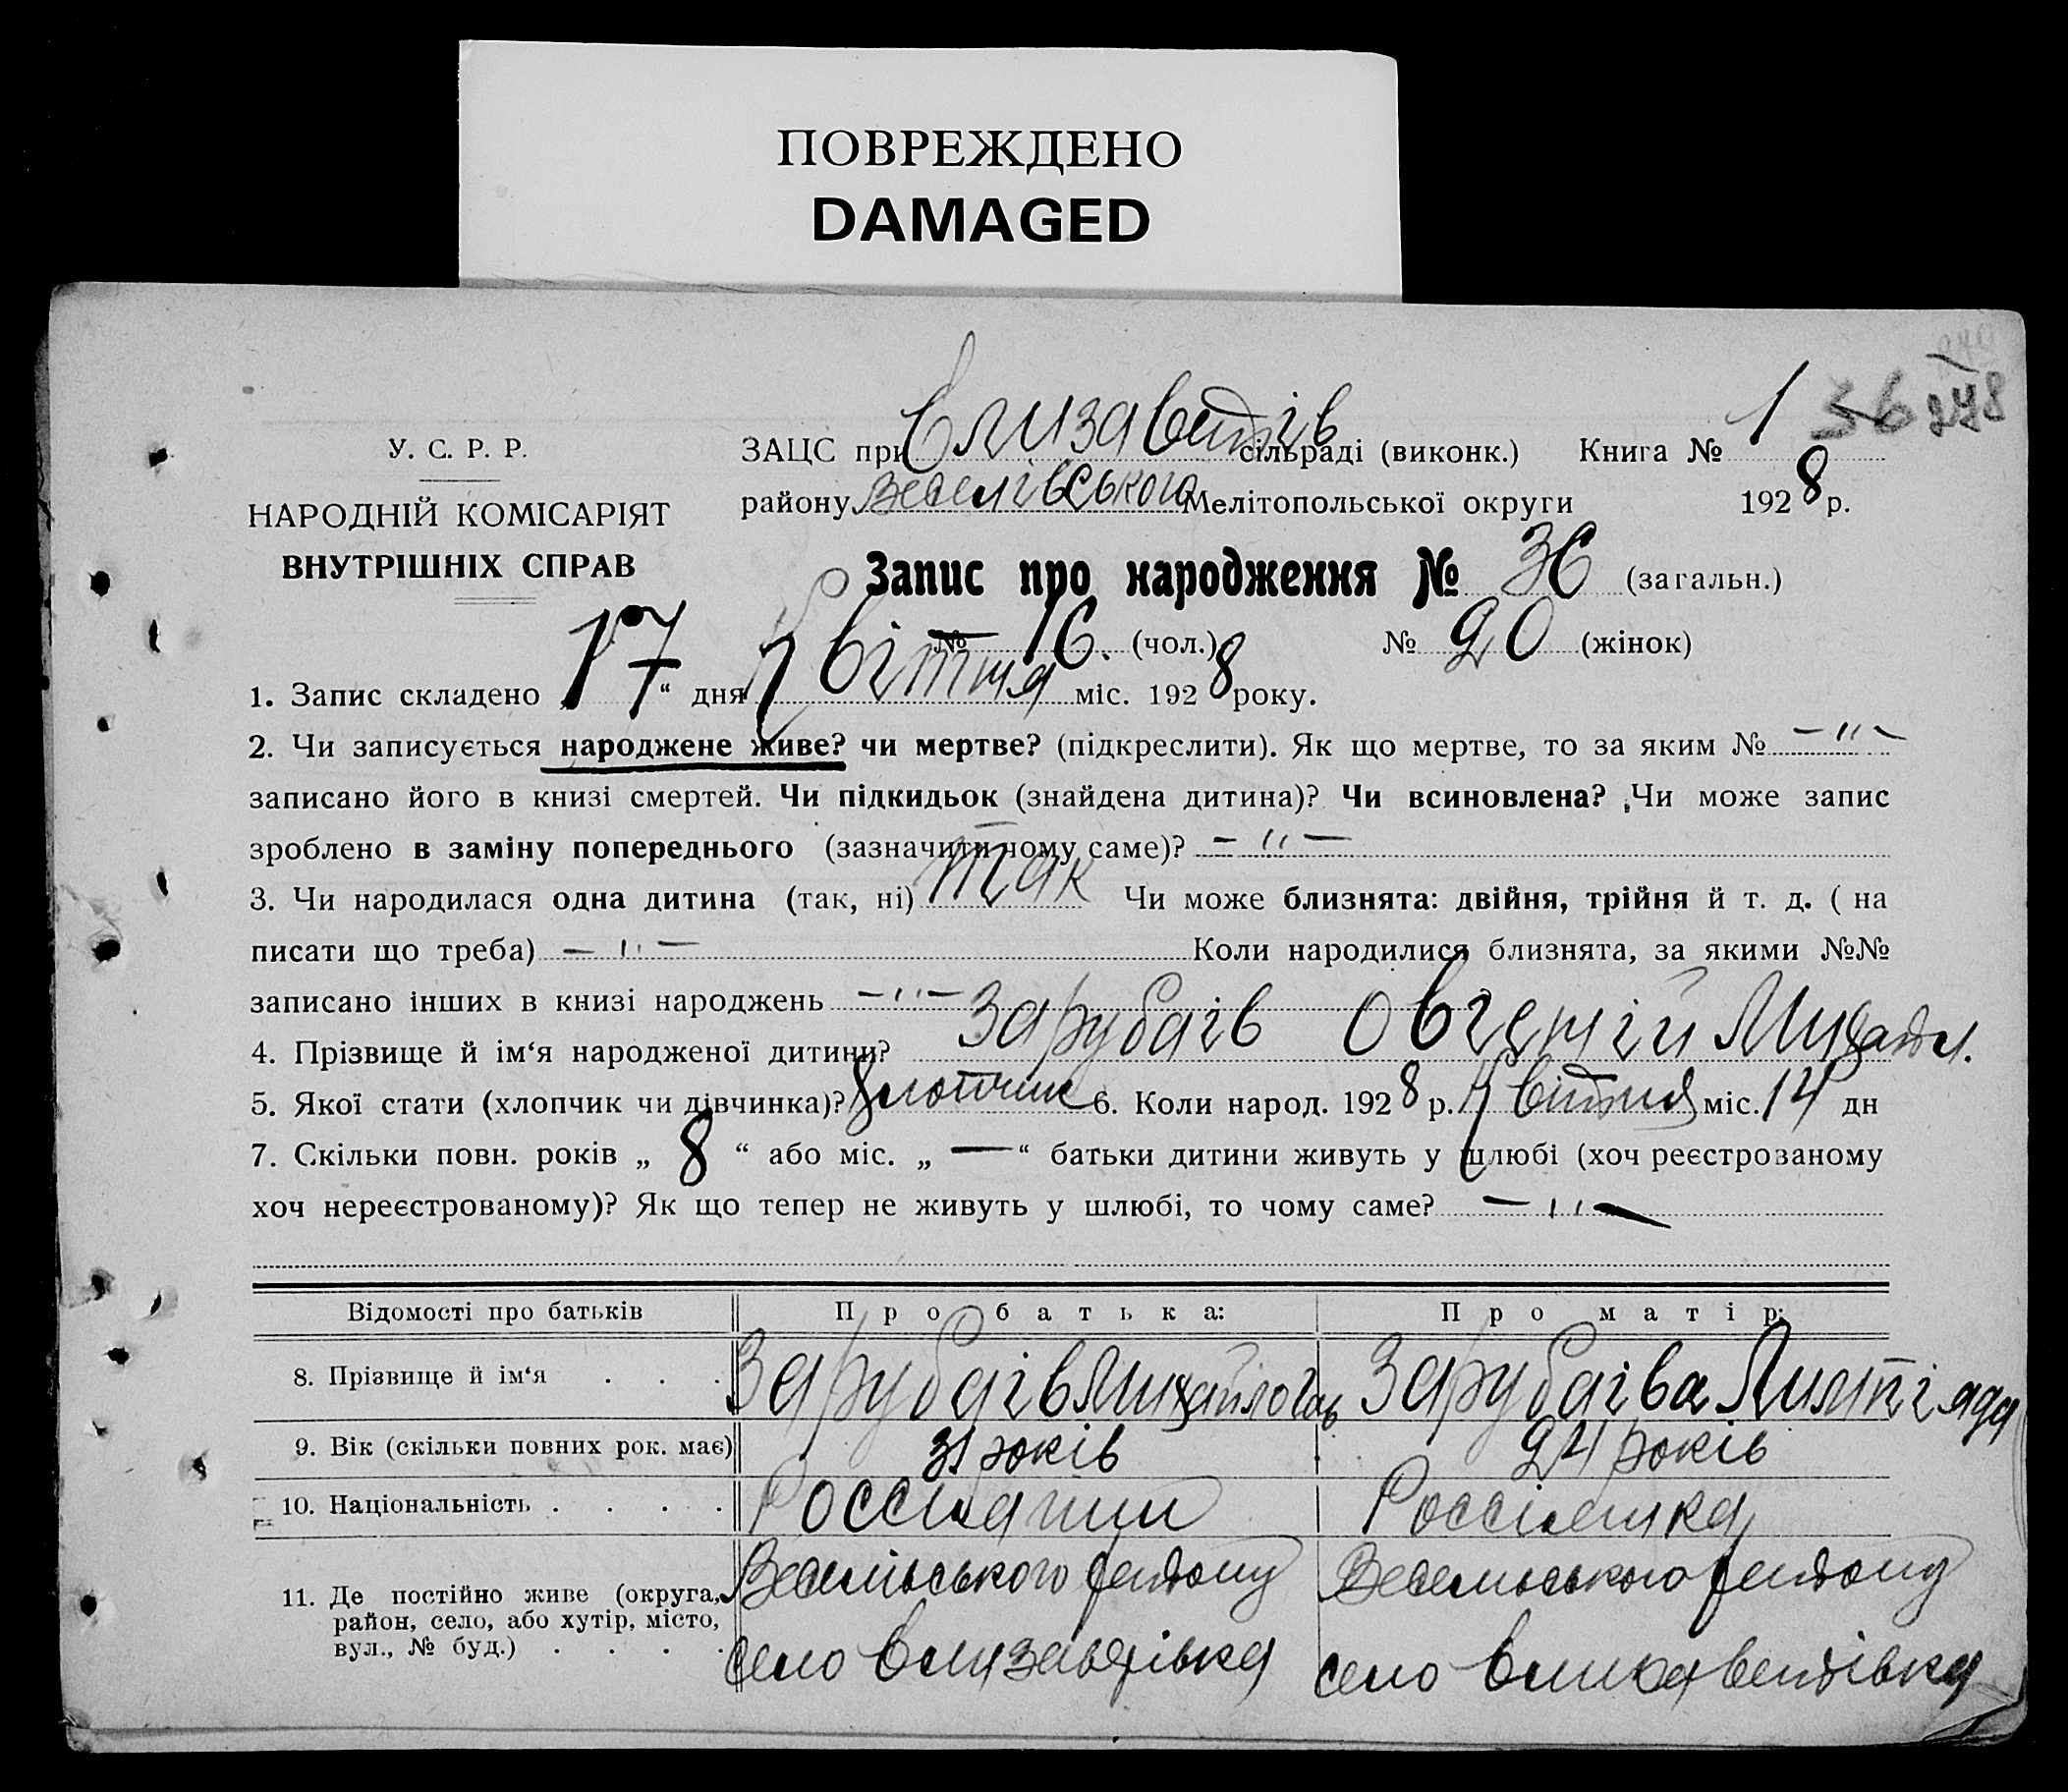 ПОВРЕЖДЕНО
DAMAGED
36 248
У. С. Р. Р.
НАРОДНІЙ КОМІСАРІЯТ
ВНУТРІШНІХ СПРАВ
ЗАЦС при Єлизаветів сільраді (виконк.) Книга № 1
району Веселівського Мелітопольської округи 1928 р.
Запис про народження № 36 (загальн.)
№ 16. (чол.) № 20 (жінок)
1. Запис складено 17 “ дня квітня міс. 1928 року.
2. Чи записується народжене живе? чи мертве? (підкреслити). Як що мертве, то за яким № — " —
записано його в книзі смертей. Чи підкидьок (знайдена дитина)? Чи всиновлена? Чи може запис
зроблено в заміну попереднього (зазначити чому саме)? — " —
3. Чи народилася одна дитина (так, ні) так Чи може близнята: двійня, трійня й т. д. ( на
писати що треба) — " — Коли народилися близнята, за якими №№
записано інших в книзі народжень — " —
4. Прізвище й ім‘я народженої дитини? Зарубаів Овгеній
5. Якої стати (хлопчик чи дівчинка)? хлопчик 6. Коли народ. 1928 р. квітня міс. 14 дн
7. Скільки повн. років „ 8 “ або міс. „ — “ батьки дитини живуть у шлюбі (хоч реєстрованому
хоч нереєстрованому)? Як що тепер не живуть у шлюбі, то чому саме? — " —
Відомості про батьків Про батька: Про матір:
8. Прізвище й ім‘я . . . Зарубаів Зарубаіва
9. Вік (скільки повних рок. має) 31 років 24 років
10. Національність . . . .
11. Де постійно живе (округа, район, село, або хутір, місто, вул., № буд.) . . . . району району
село село